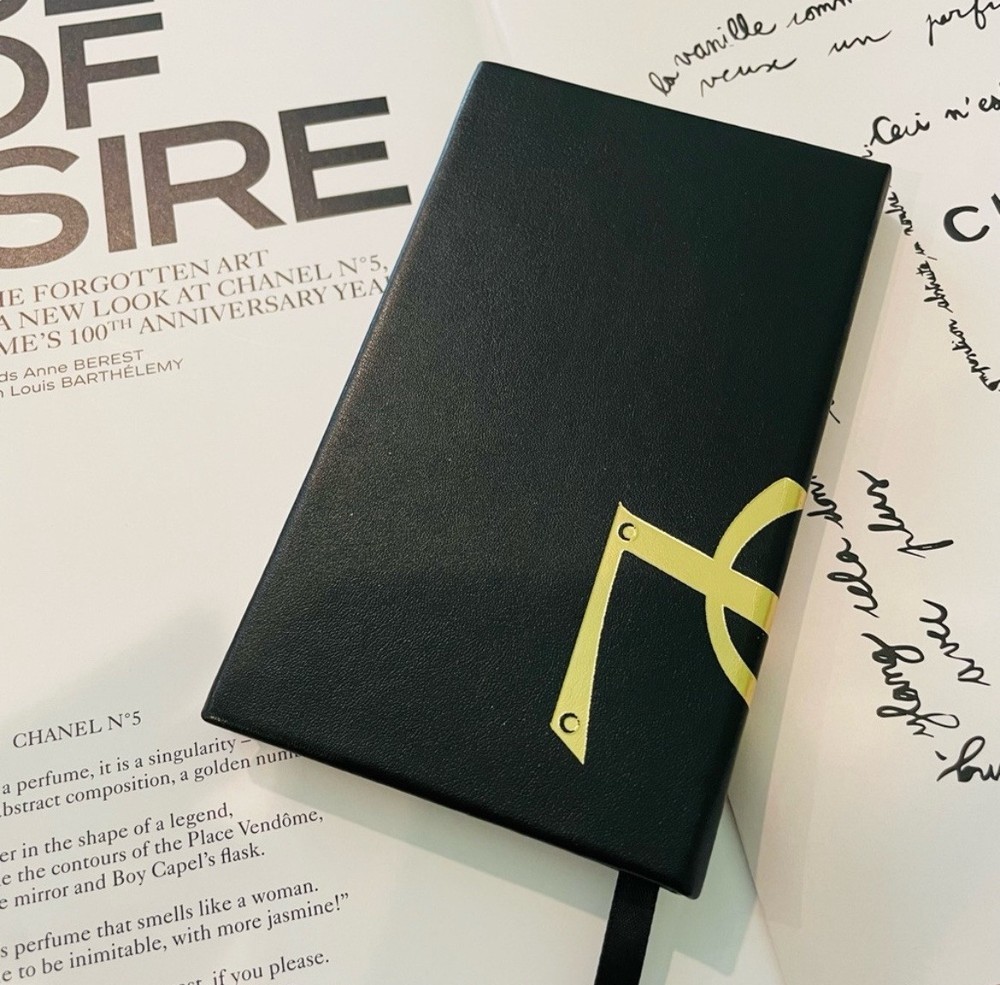 OF
SIRE
E FORGOTTEN ART
A NEW LOOK AT CHANEL N°5,
ME'S 100TH ANNIVERSARY YEA
ds Anne BEREST
n Louis BARTHÉLEMY
CHANEL N°5
a perfume, it is a singularity –
abstract composition, a golden num
er in the shape of a legend,
e the contours of the Place Vendôme,
e mirror and Boy Capel's flask.
s perfume that smells like a woman.
e to be inimitable, with more jasmine!”
if you please.
la vanille comm
veux un parf
Ceci n'es
C
ylang
avec plus